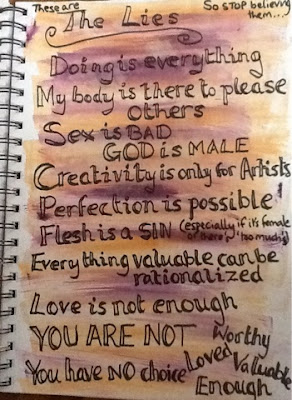 These are
So STOP believing
them....
The Lies
Doing is everything
My body is there to please
others
Sex is BAD
GOD is MALE
Creativity is only for Artists
Perfection is possible
Flesh is a SIN (especially if it's female
or there's 'too much')
Every thing valuable can be
rationalized
Love is not enough
YOU ARE NOT Worthy
Loved Valuable
You have NO choice Enough